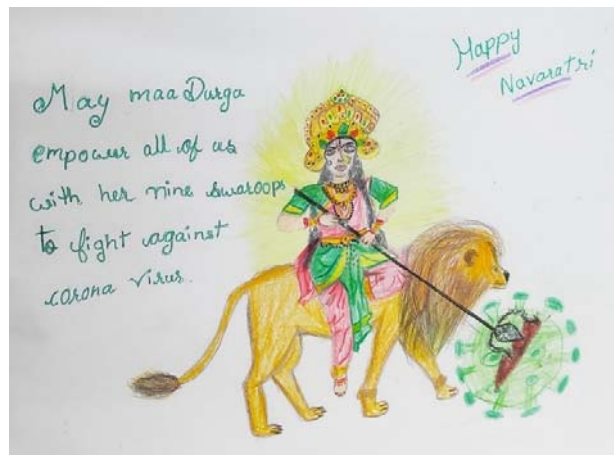 May maa Durga
empower all of us
with her nine swaroops
to fight against
corona virus.
Happy
Navaratri